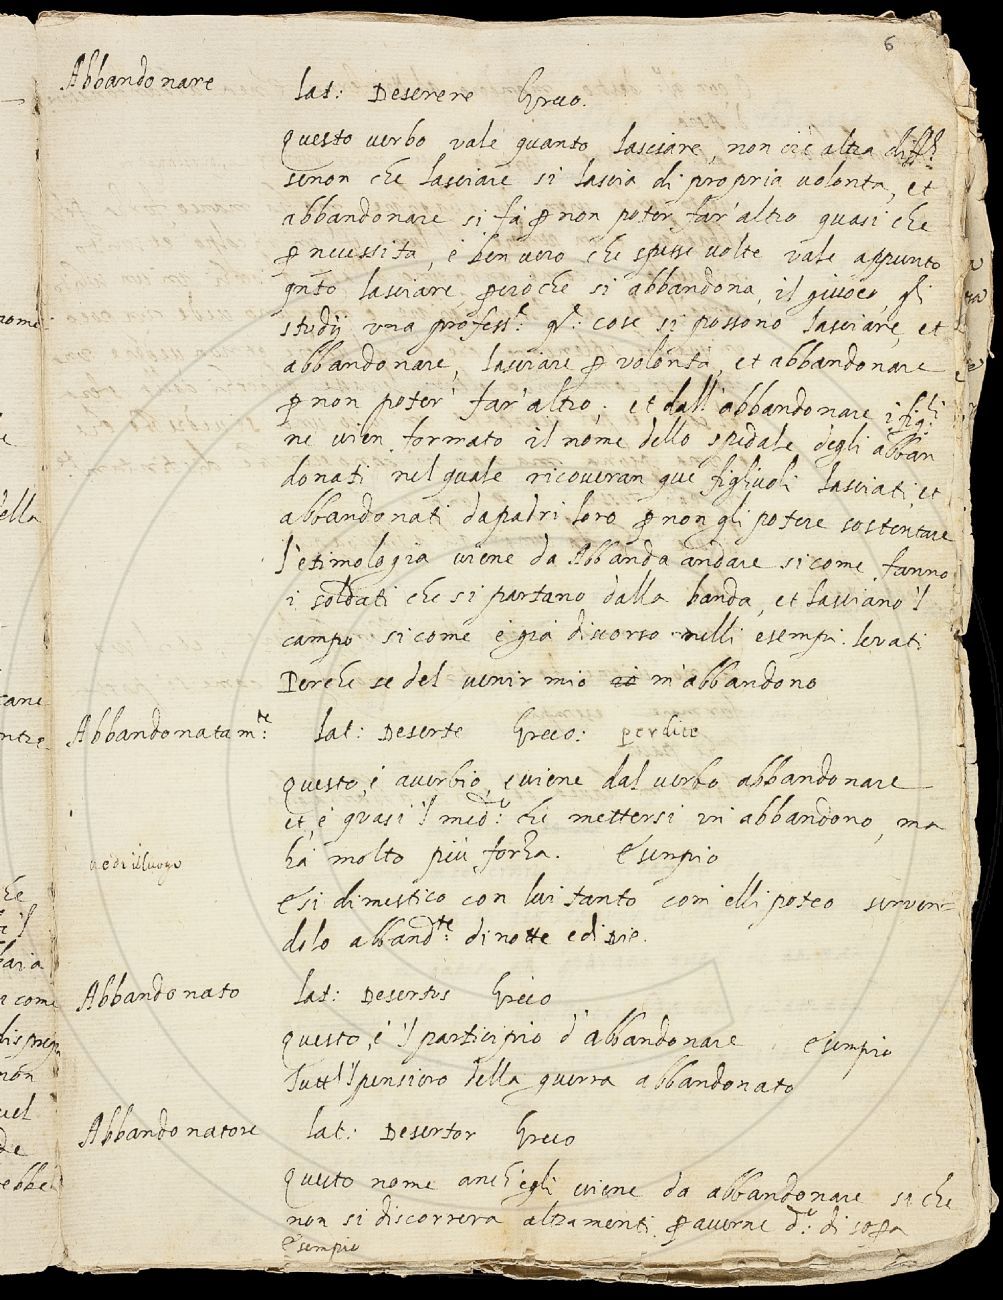 6
Abbandonare lat: Deserere Greco.
Questo verbo vale quanto lasciare, non ci è altra diff.ª
senon che lasciare si lascia di propria volonta, et
abbandonare si fà ꝑ non poter far' altro quasi che
ꝑ necessita, è ben vero che spesse volte vale appunto
qnto lasciare, ꝑcioche si abbandona, il giuoco, gli
studij vna profess.ͤ q.ͤ cose si possono lasciare, et
abbandonare, lasciare ꝑ volonta, et abbandonare
ꝑ non poter' far' altro; et dall' abbandonare i fig.li
ne vien formato il nome dello spedale degli abban
donati nel quale ricoveran que' figliuoli lasciati, et
abbandonati da padri loro ꝑ non gli potere sostentare
l'etimologia viene da Abbanda andare si come fanno
i soldati che si partano dalla banda, et lasciano 'l
campo si come è già discorso nelli esempi levati
Perche se del venir mio m'abbandono
Abbandonatam:te lat: Deserte Greco: perdice
Questo, è averbio, e viene dal verbo abbandonare
et, è quasi 'l med.º che mettersi in abbandono, ma
hà molto più forza. Esempio
E si dimestico con lui tanto com' elli poteo serven=
dolo abband:te di notte e di Die.
vedi il luogo
Abbandonato lat: Desertus Greco
Questo, è 'l participio d'abbandonare Esempio
Tutt' 'l pensiero della guerra abbandonato
Abbandonatore lat: Desertor Greco
Questo nome anch'egli viene da abbandonare si che
non si discorrera altramenti ꝑ averne d.º di sopa
Esempio